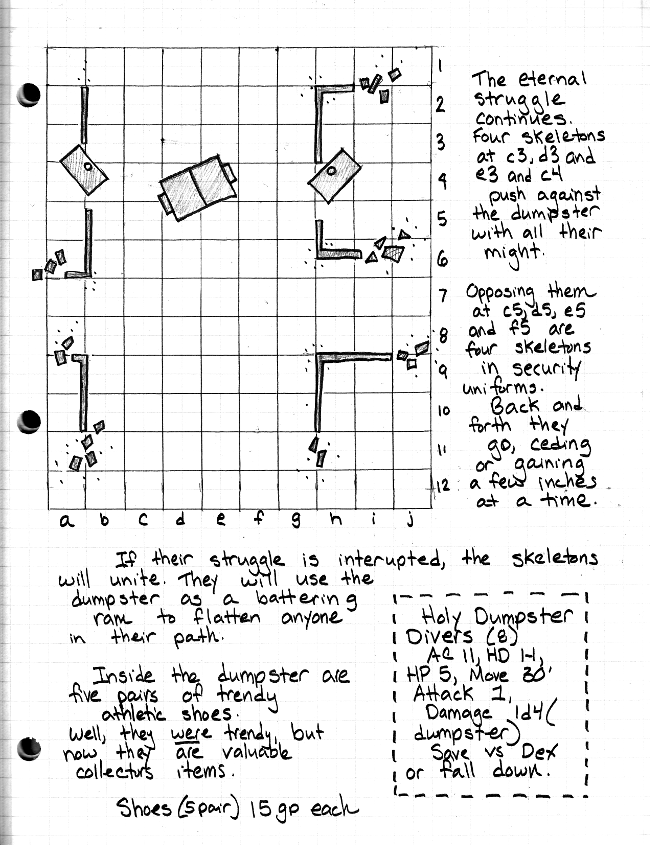 1
2
3
4
5
6
7
8
9
10
11
12
a b c d e f g h i j
The eternal
struggle
continues.
Four skeletons
at c3, d3 and
e3 and c4
push against
the dumpster
with all their
might.
Opposing them
at c5, d5, e5
and f5 are
four skeletons
in security
uniforms.
Back and
forth they
go, ceding
or gaining
a few inches
at a time.
If their struggle is interupted, the skeletons
will unite. They will use the
dumpster as a battering
ram to flatten anyone
in their path.
Inside the dumpster are
five pairs of trendy
athletic shoes.
Well, they were trendy, but
now they are valuable
collectors items.
Shoes (5 pair) 15 gp each
Holy Dumpster
Divers (8)
AC 11, HD 1-1,
HP 5, Move 30'
Attack 1,
Damage 1d4 (
dumpster)
Save vs Dex
or fall down.